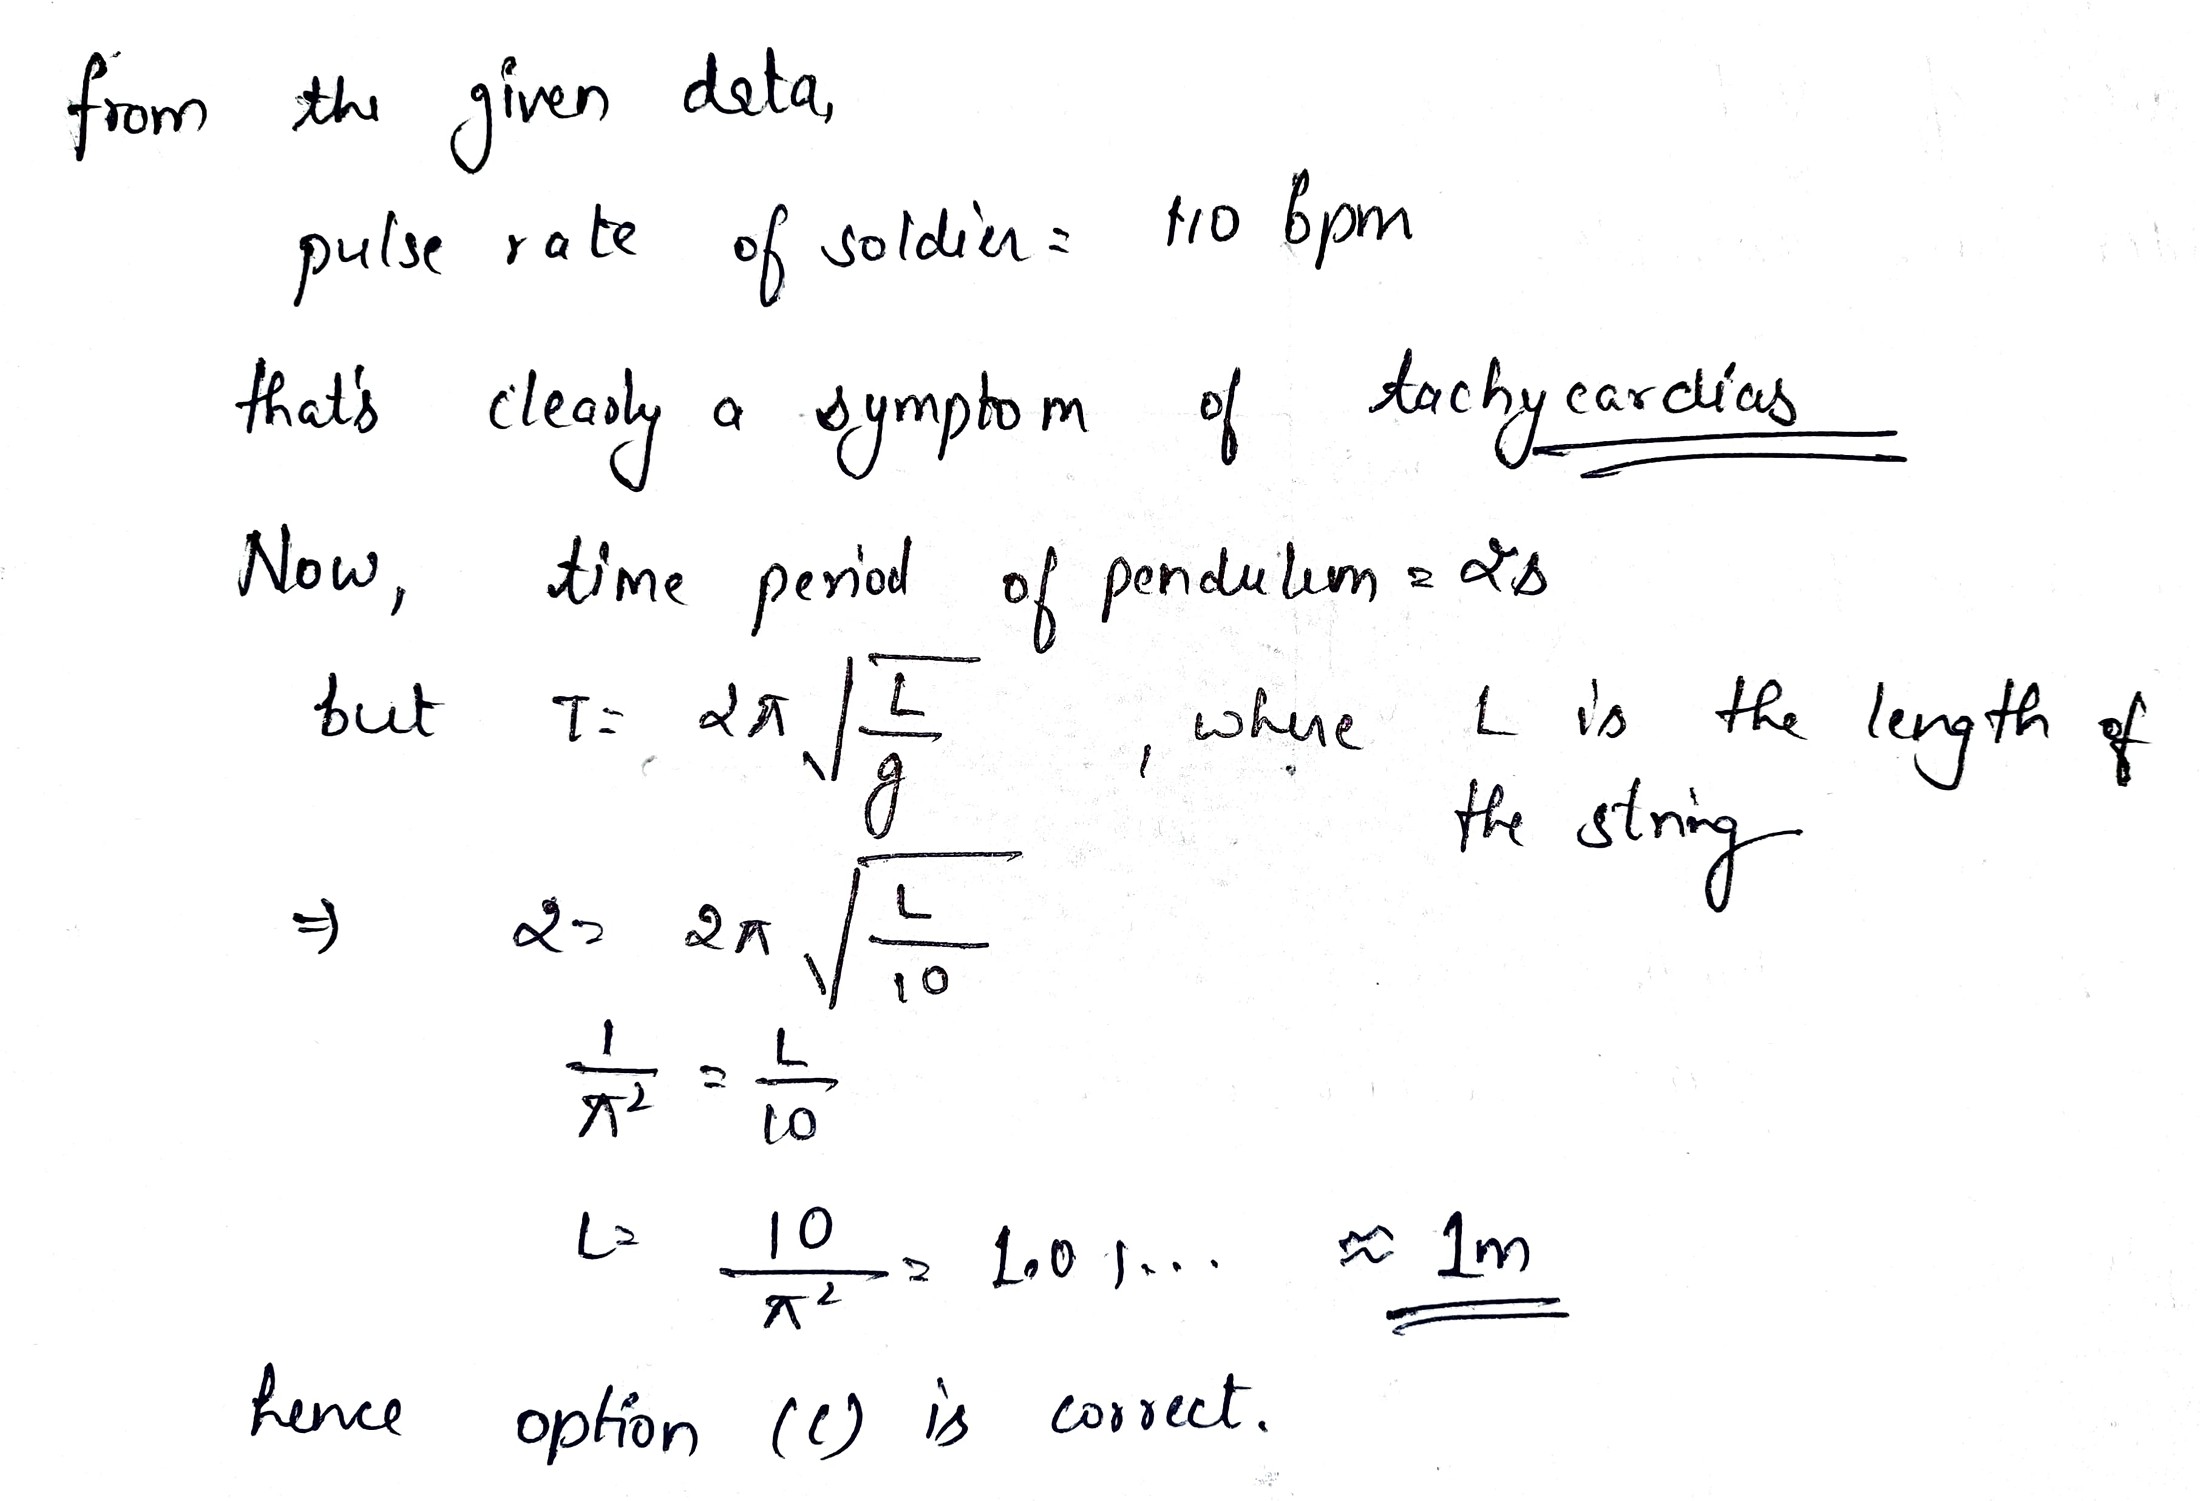 from the given data,
pulse rate of soldier = 110 bpm
that's clearly a symptom of tachycardias
Now, time period of pendulum = 2s
but T = 2π √(L/g) , where L is the length of
the string
⇒ 2 = 2π √(L/10)
1/π² = L/10
L = 10/π² = 1.01... ≈ 1m
hence option (c) is correct.